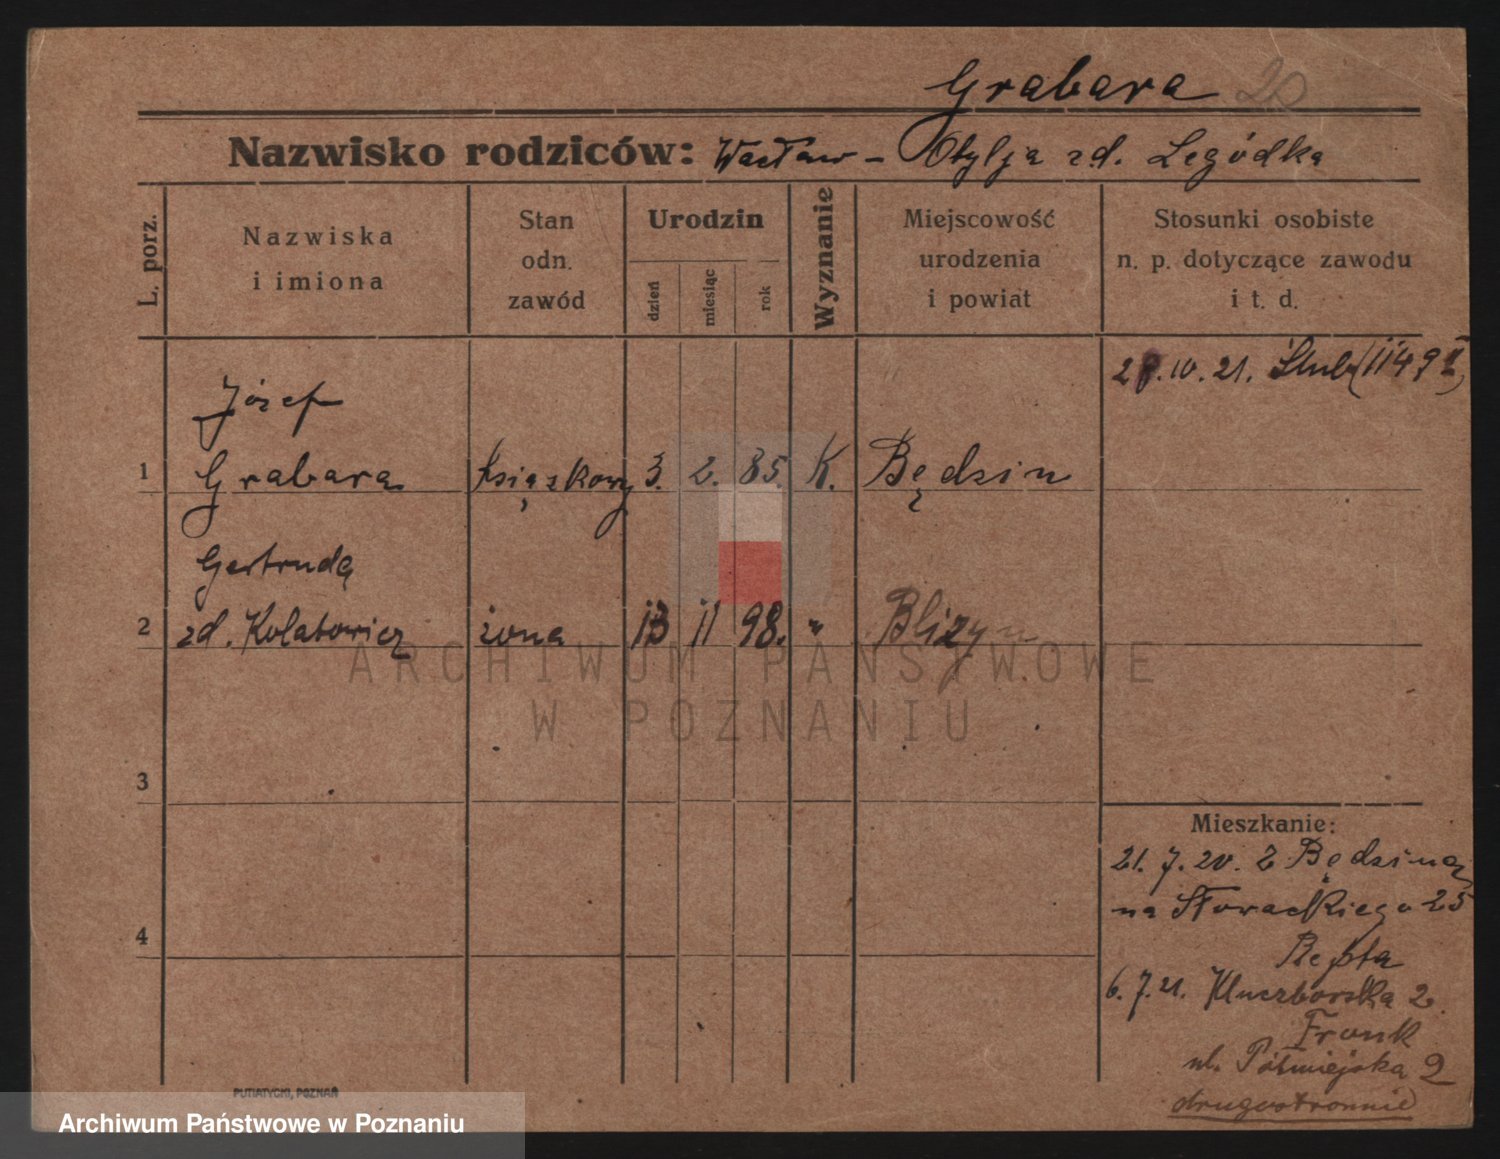 Grabara 20
Nazwisko rodziców: Wacław – Otylja zd. Legódka
L. porz.
Nazwiska
i imiona
Stan
odn.
zawód
Urodzin
dzień
miesiąc
rok
Wyznanie
Miejscowość
urodzenia
i powiat
Stosunki osobiste
n. p. dotyczące zawodu
i t. d.
28.10.21. Ślub (1149 II)
Józef
1 Grabara Książkowy 3. 2. 85. K. Będzin
Gertruda
2 zd. Kolatowicz żona 13 11 98. " Bliżyn
ARCHIWUM PAŃSTWOWE
W POZNANIU
3
4
Mieszkanie:
21.7.20. z Będzina
na Słowackiego 25
6.7.21. Kluczborska 2
Frank
ul. Półwiejska 2
drugostronnie
PUTIATYCKI, POZNAŃ
Archiwum Państwowe w Poznaniu